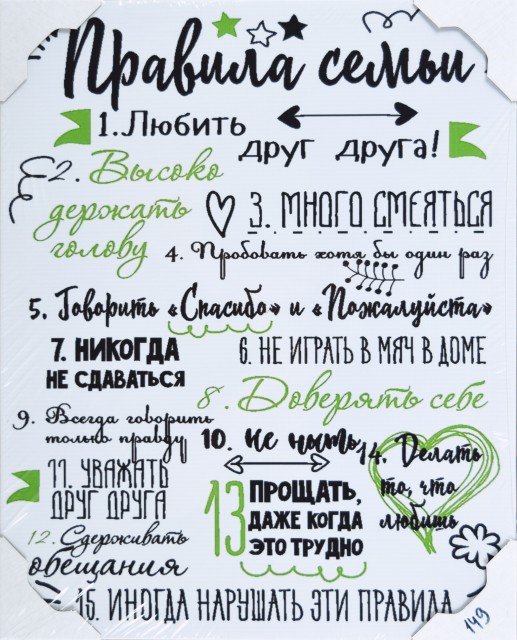 Правила семьи
1. Любить
друг друга!
2. Высоко
держать
голову
3. МНОГО СМЕЯТЬСЯ
4. Пробовать хотя бы один раз
5. Говорить «Спасибо» и «Пожалуйста»
7. НИКОГДА
НЕ СДАВАТЬСЯ
6. НЕ ИГРАТЬ В МЯЧ В ДОМЕ
8. Доверять себе
9. Всегда говорить
только правду
10. Не ныть
14. Делать
то, что
любишь
11. УВАЖАТЬ
ДРУГ ДРУГА
13 ПРОЩАТЬ,
ДАЖЕ КОГДА
ЭТО ТРУДНО
12. Сдерживать
обещания
15. ИНОГДА НАРУШАТЬ ЭТИ ПРАВИЛА
149